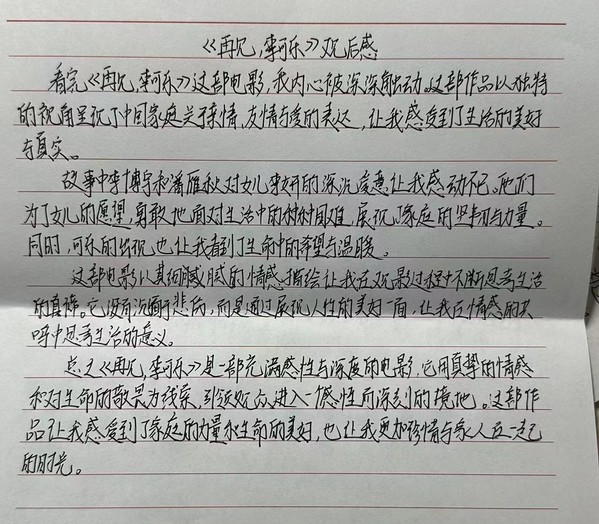 《再见,李可乐》观后感
看完《再见,李可乐》这部电影,我内心被深深触动。这部作品以独特
的视角呈现了中国家庭关于亲情,友情与爱的表达,让我感受到了生活的美好
与真实。
故事中李博宇和潘雁秋对女儿李妍的深沉爱意让我感动不已。他们
为了女儿的愿望,勇敢地面对生活中的种种困难,展现了家庭的坚韧与力量。
同时,可乐的出现也让我看到了生命中的希望与温暖。
这部电影以其细腻的情感描绘让我在观影过程中不断思考生活
的真谛。它没有沉湎于悲伤,而是通过展现人性的美好一面,让我在情感的共
鸣中思考生活的意义。
总之《再见,李可乐》是一部充满感性与深度的电影,它用真挚的情感
和对生命的敬畏为线索,引领观众进入一个感性而深刻的境地。这部作
品让我感受到了家庭的力量和生命的美好,也让我更加珍惜与家人在一起
的时光。